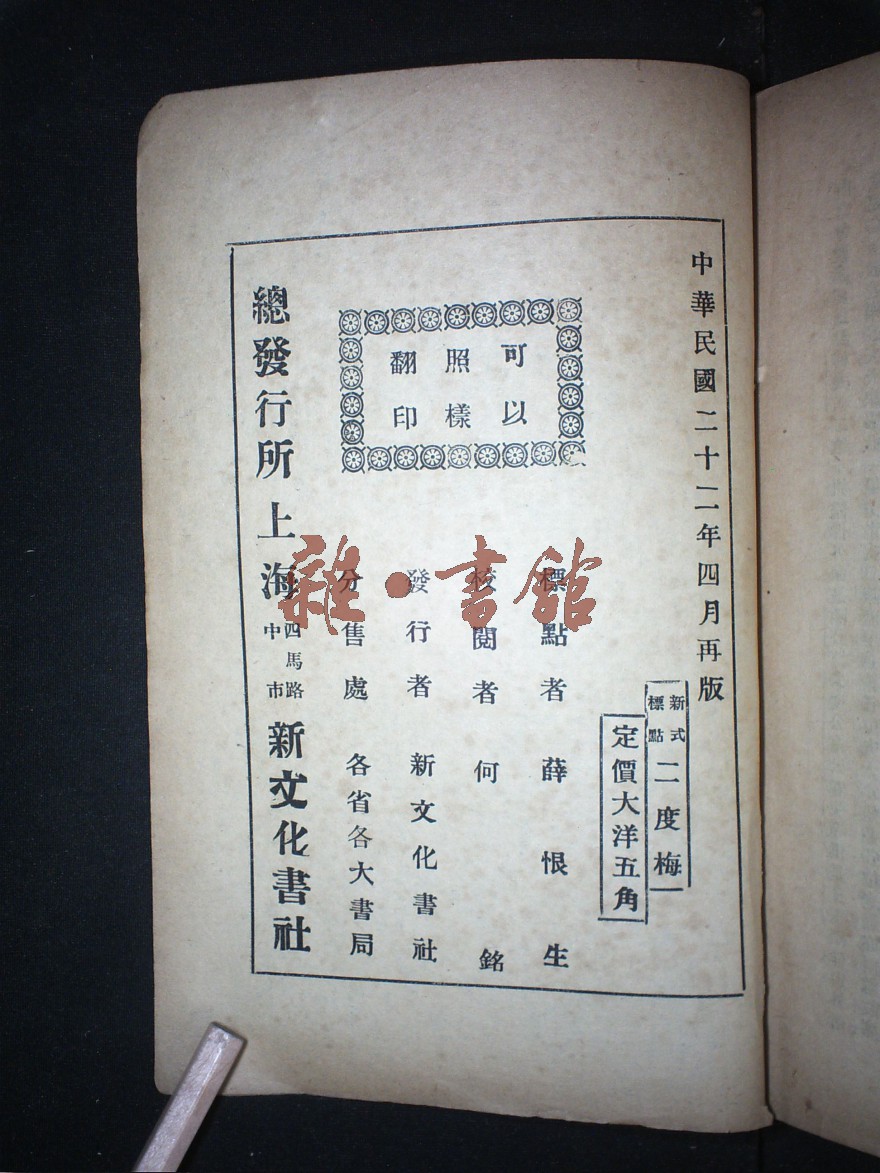 中華民國二十二年四月再版
新式標點 二度梅
定價大洋五角
可以
照樣
翻印
標點者 薛恨生
校閱者 何銘
發行者 新文化書社
分售處 各省各大書局
總發行所 上海 四馬路中市 新文化書社
雜·書館